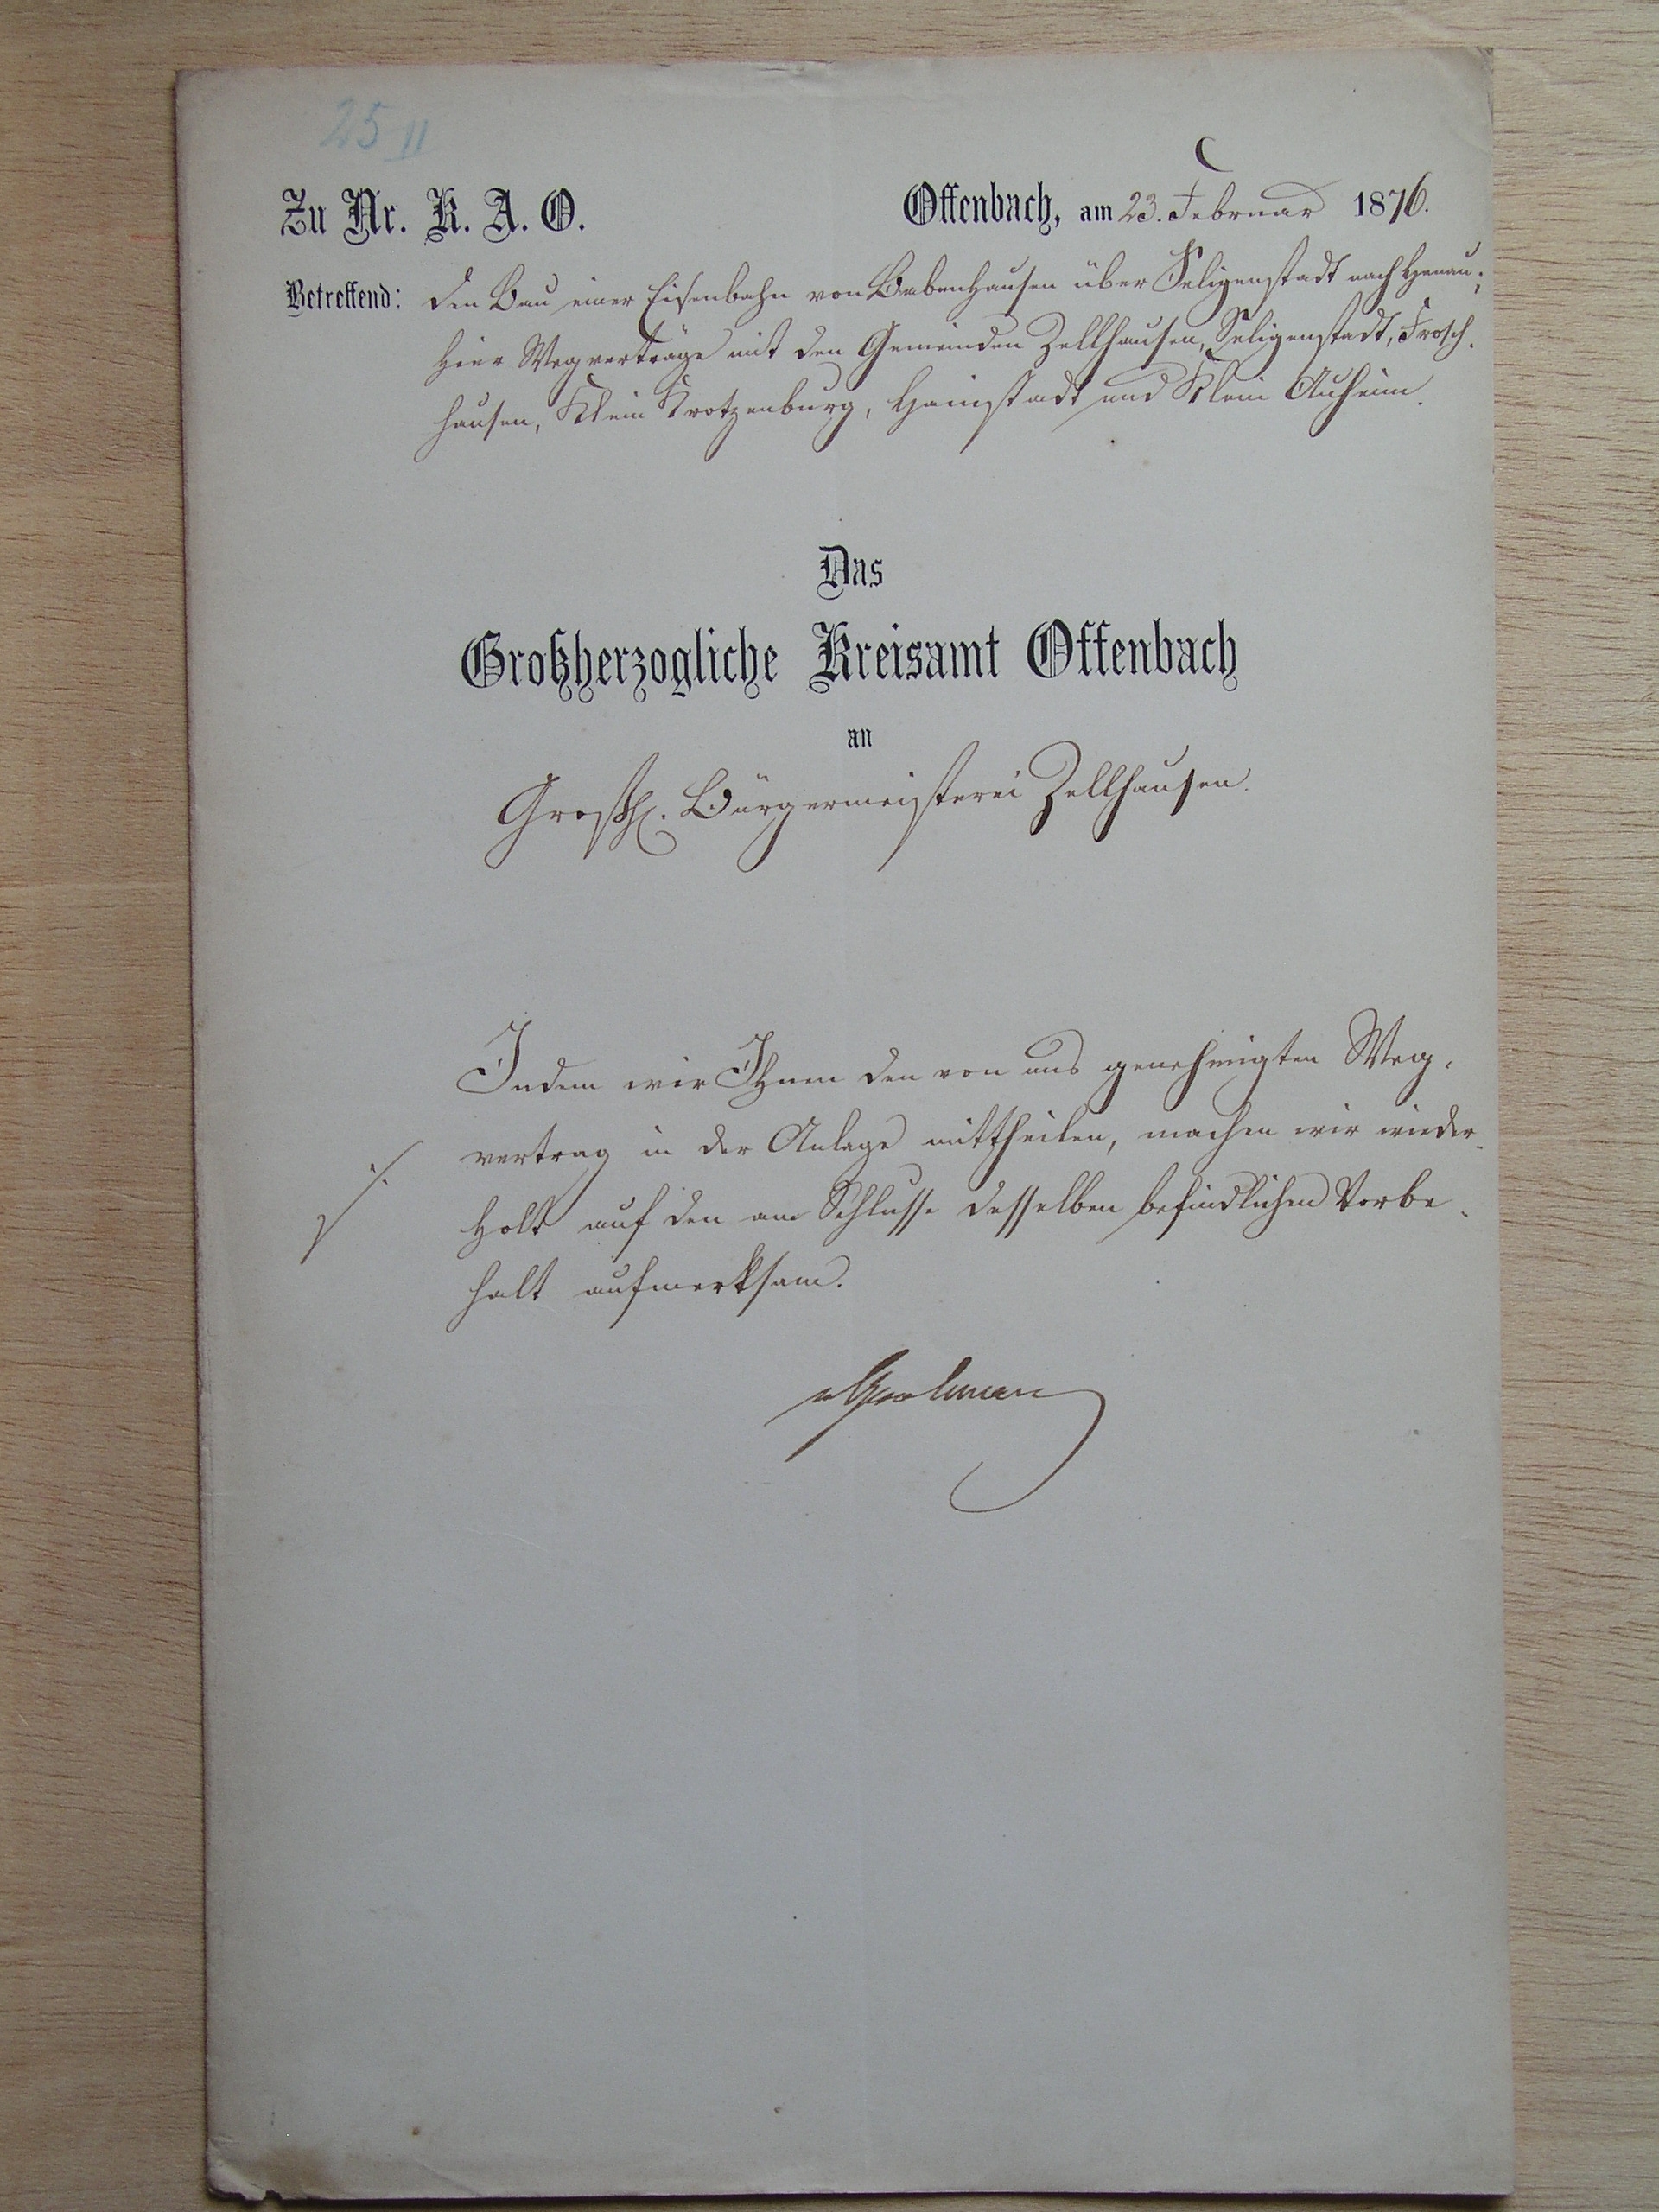 25 II
Zu Nr. K. A. O.
Offenbach, am 23. Februar 1876.
Betreffend: den Bau einer Eisenbahn von Babenhausen über Seligenstadt nach Hanau;
hier Wegverträge mit den Gemeinden Zellhausen, Seligenstadt, Frosch-
hausen, Klein Krotzenburg, Hainstadt und Klein Auheim.
Das
Großherzogliche Kreisamt Offenbach
an
Großh. Bürgermeisterei Zellhausen.
Indem wir Ihnen den von uns genehmigten Weg-
vertrag in der Anlage mittheilen, machen wir wieder-
holt auf den am Schlusse desselben befindlichen Vorbe-
halt aufmerksam.